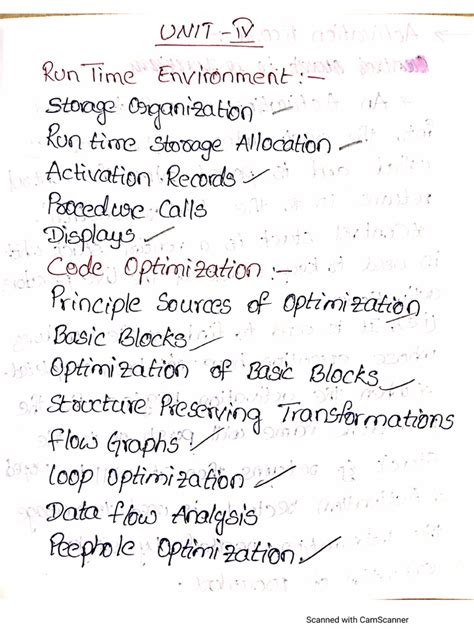 UNIT - IV
Run Time Environment :-
Storage Organization
Run time Storage Allocation
Activation Records
Procedure Calls
Displays
Code Optimization :-
Principle Sources of Optimization
Basic Blocks
Optimization of Basic Blocks
Structure Preserving Transformations
Flow Graphs
Loop Optimization
Data flow Analysis
Peephole Optimization.
Scanned with CamScanner